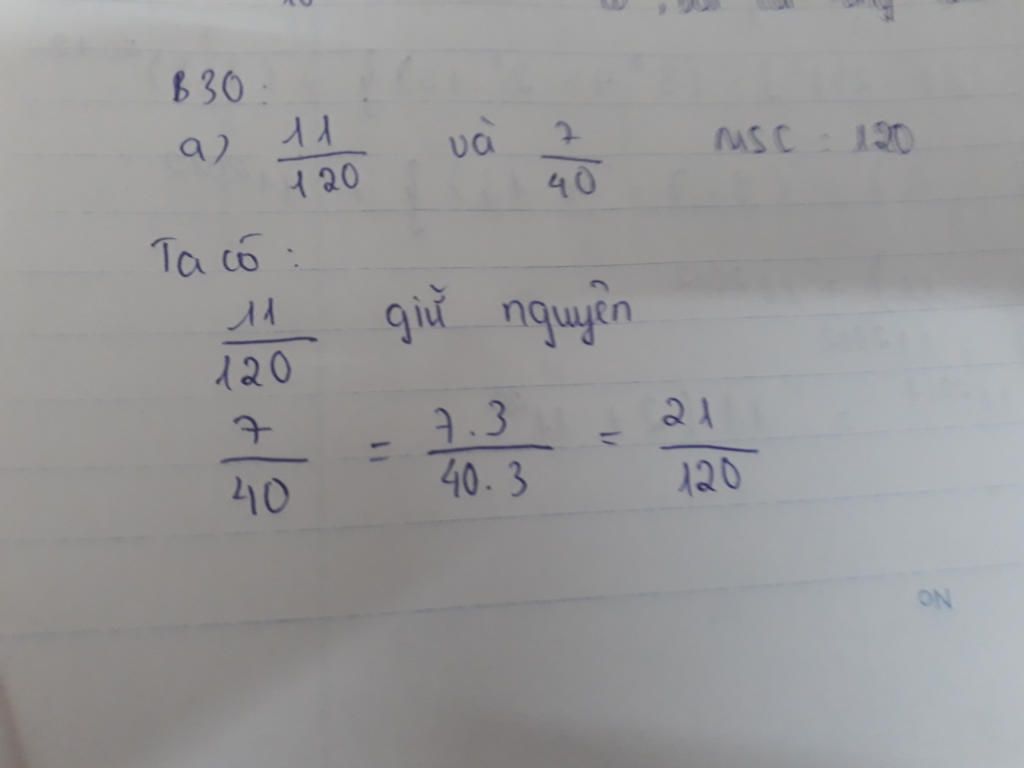 B30:
a) 11/120 và 7/40 MSC : 120
Ta có :
11/120 giữ nguyên
7/40 = 7.3/40.3 = 21/120